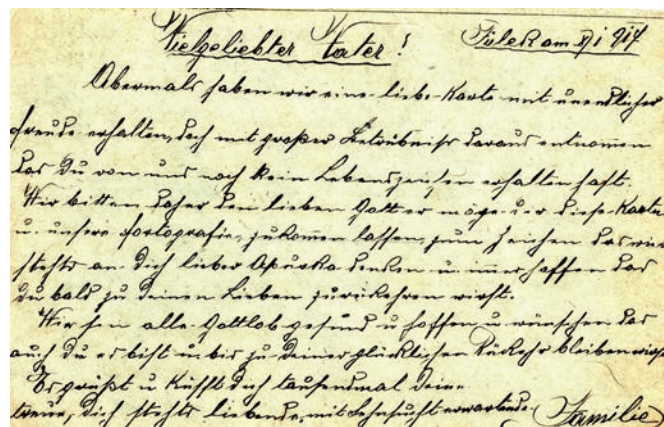 Vielgeliebter Vater! Fülek am 917
Abermals haben wir eine liebe Karte mit unendlicher
freude erhalten, doch mit großer Betrübniss daraus entnommen
das Du von uns noch kein Lebenszeichen erhalten hast.
Wir bitten daher den lieben Gott er möge dir diese Karte
u. unsere fortografie, zukomen lassen, zum Zeichen das wir
stehts an Dich lieber Apuska denken u. imer hoffen das
du bald zu deinen Lieben zurükkehren wirst.
Wir sein alle Gottlob gesund u hoffen u wünschen das
auch du es bist u. bis zu deiner glücklichen Rükehr bleiben wirst
Es grüßt u küsst dich tausendmal deine
treue, dich stehts liebende, mit Sehnsucht erwartende (Familie)